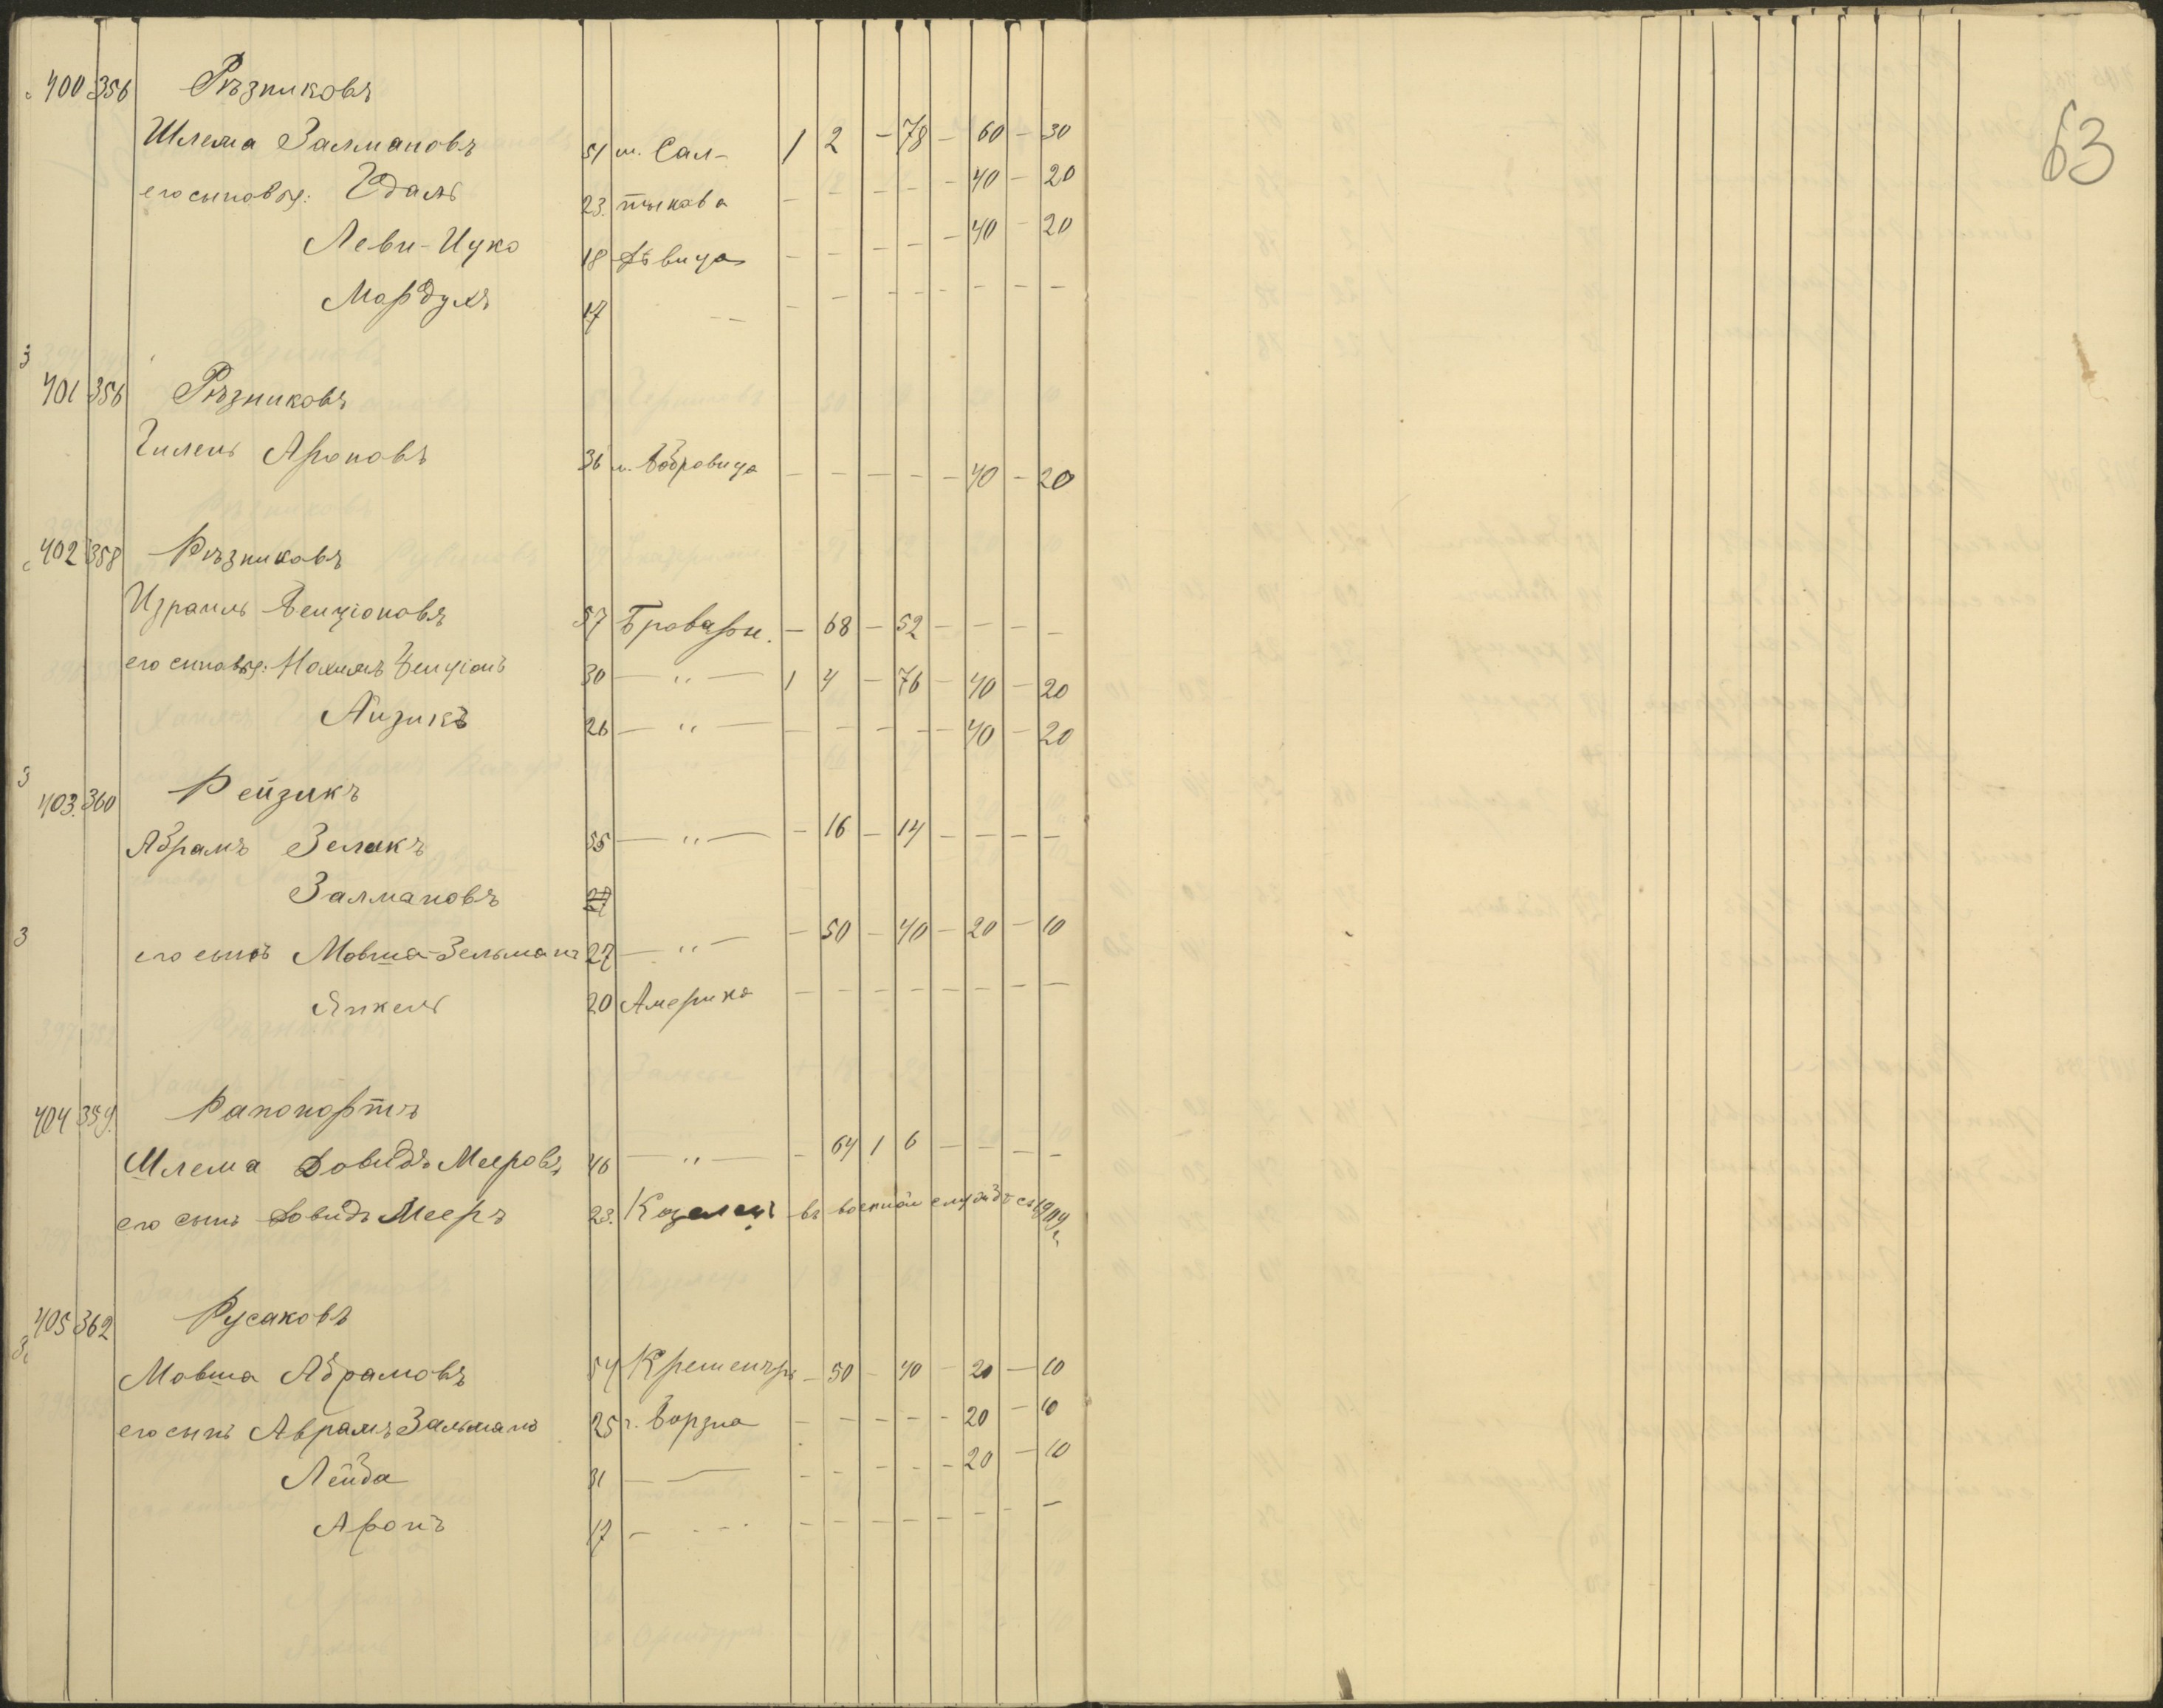 400 356 Рѣзниковъ
Шлема Залмановъ 51 м. Сал- 1 2 - 78 - 60 - 30
его сыновья: Юдаль 23. тыкова - - - - - 40 - 20
Леви-Ицко 18 Дѣвица - - - - - 40 - 20
Мордухъ 17 - - - - - - - -
3
401 356 Рѣзниковъ
Гилель Ароновъ 36 м. Бобровица - - - - - 40 - 20
402 358 Рѣзниковъ
Израиль Бенціоновъ 57 Бровары. - 68 - 52 - - - -
его сыновья: Нохимъ Бенціонъ 30 — " — 1 4 - 76 - 40 - 20
Айзикъ 26 — " — - - - - - 40 - 20
3
403. 360 Рейзикъ
Абрамъ Зеликъ 55 — " — - 16 - 14 - - - -
Залмановъ 27
3
его сынъ Мовша-Зельманъ 27 — " — - 50 - 40 - 20 - 10
Янкель 20 Америка - - - - - - - -
404 359. Рапопортъ
Шлема Довидъ Мееровъ 46 — " — - 64 1 6 - - - -
его сынъ Довидъ Мееръ 23. Козелец въ военной службѣ съ 1904 г.
405 362 Русаковъ
3
Мовша Абрамовъ 54 Кременчуг - 50 - 40 - 20 - 10
его сынъ Аврамъ Зальманъ 25 г. Борзна - - - - - 20 - 10
Лейба 31 — — - - - - - 20 - 10
Аронъ 17 - - - - - - - - -
63